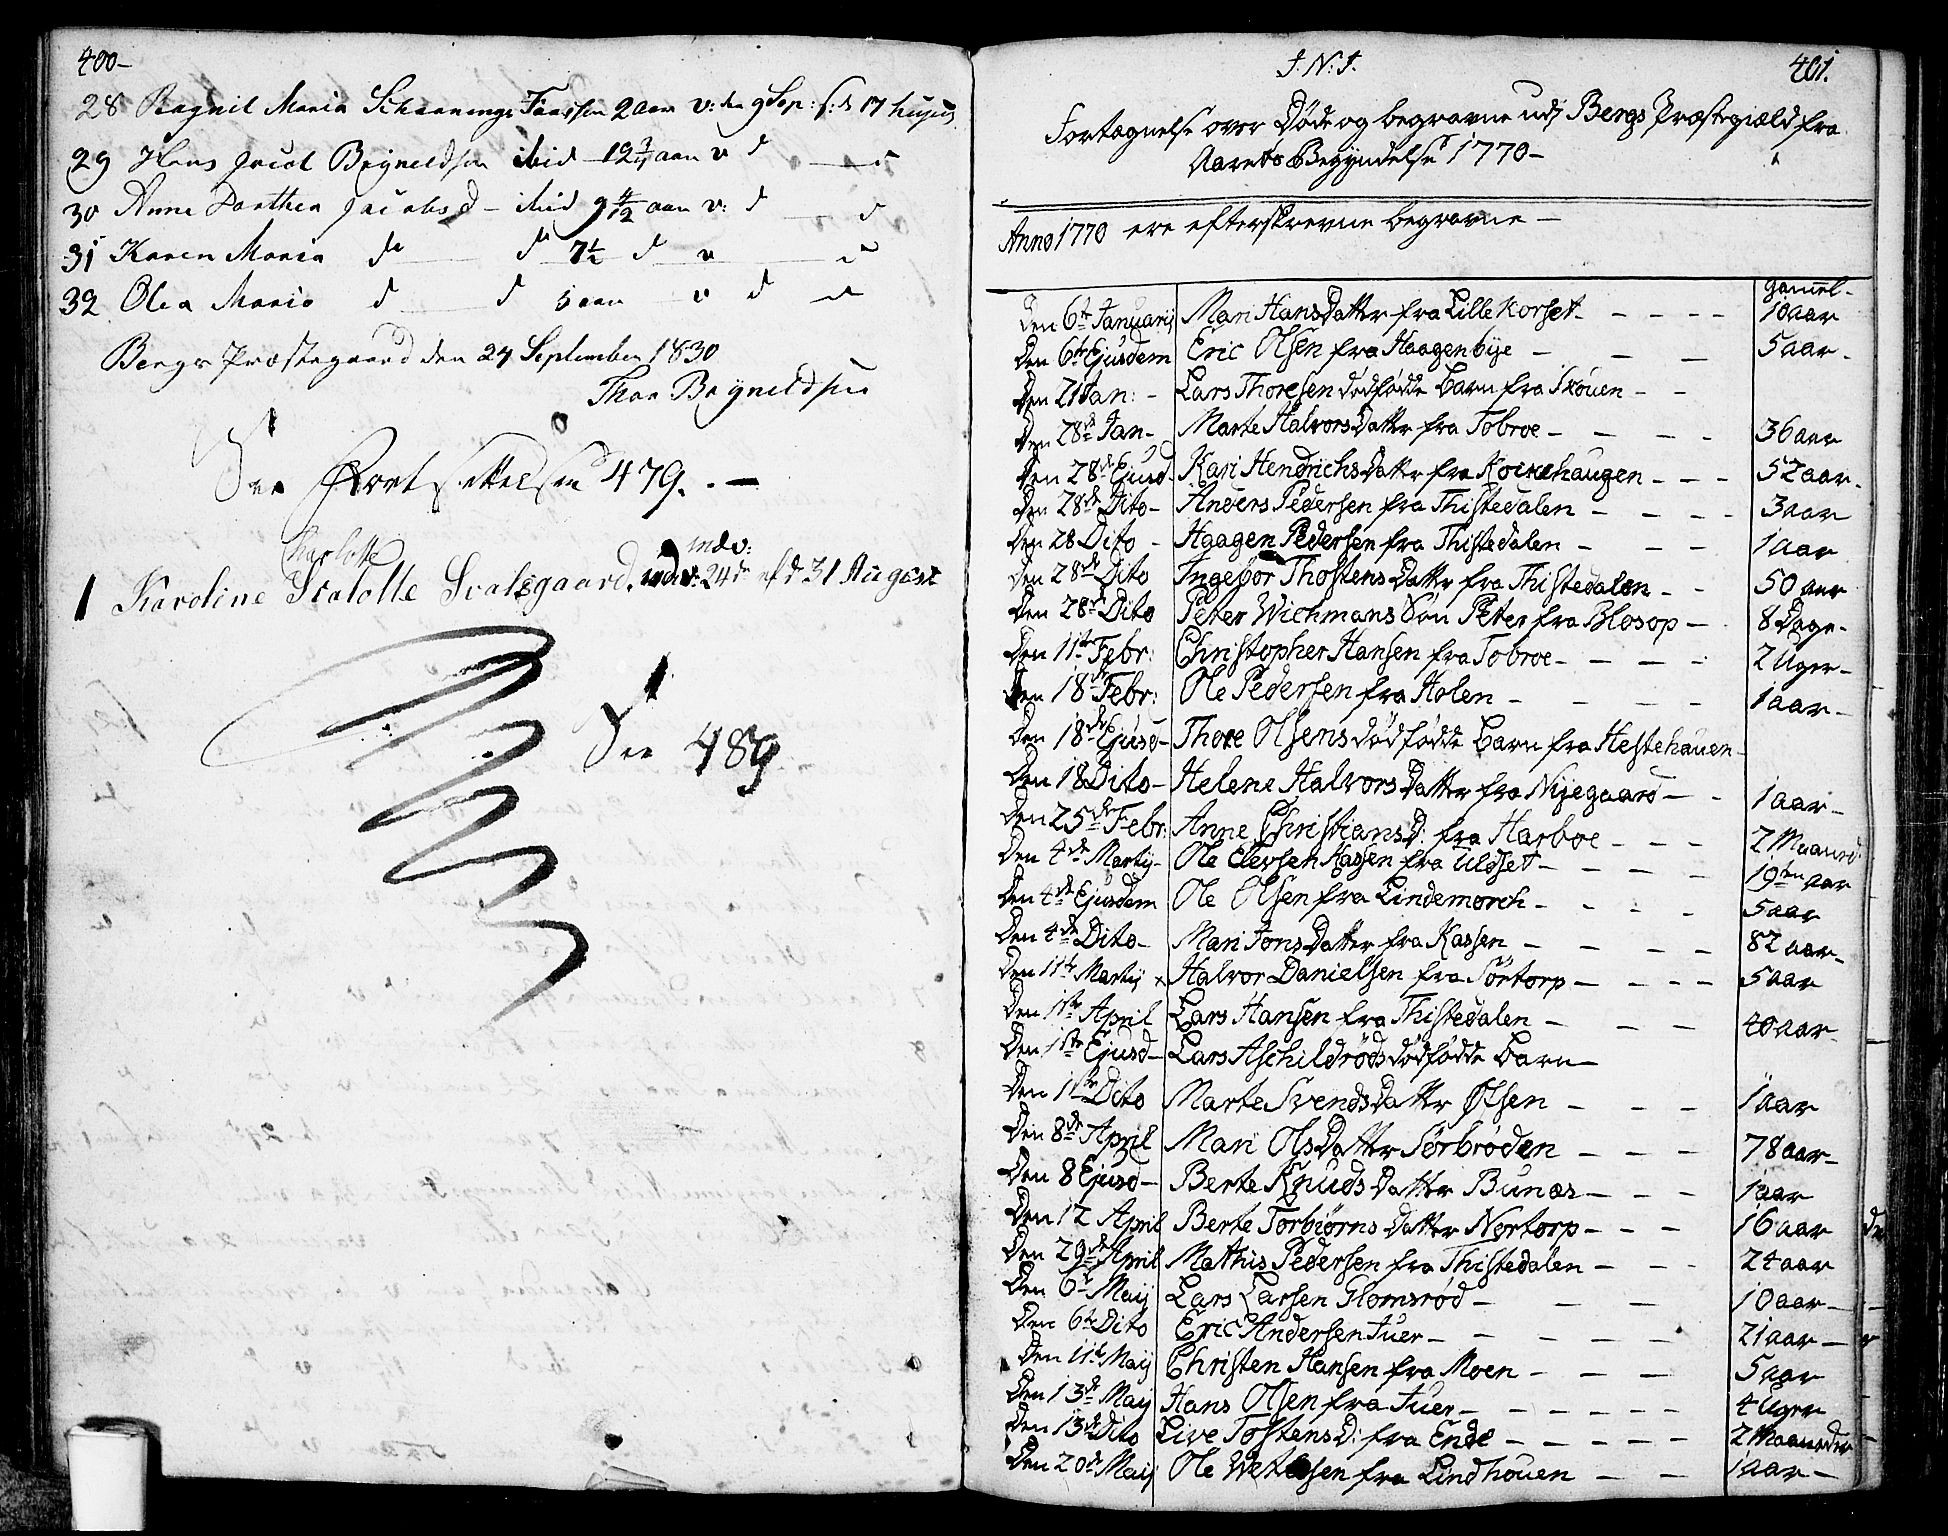 400-
28 Ragnil Maria Schaanings Tanssen 2 aar v: den 9 Sep: f: d 17 hujus
29 Hans Jacob Bryneldsen ibid 12 3/4 aar v d — d
30 Anne Dorthea Jacobsd - ibid 9 4/12 aar v: d — d
31 Karen Maria d — d 7 1/2 d v — d
32 Olea Maria d — d 5 aar v d d
Bergs Præstegaard den 24 September 1830
Thor Bryneldsen
See Fortsettelsen 479. -
Charlotte indv:
1 Karoline Svalsgaard. 24de ef d 31 August
See 489
J. N: J. 401.
Fortægnelse over Døde og begravne udj Bergs Præstegiæld fra
Aarets Begyndelse 1770-
Anno 1770 ere efterskrevne begravne -
gamel-
Den 6te Januarij Mari HansDatter fra Lille Korset - - - - 10 aar
Den 6te Ejusdem Eric Olsen fra Haagenbye - - - 5 aar -
Den 21 Jan: - Lars Thoresen dødfødde Barn fra Skouen - -
Den 28de Jan - Marte HalvorsDatter fra Tobroe - - - - 36 aar
Den 28de Ejusd - Kari HendrichsDatter fra Kockehaugen - - - 52 aar -
Den 28de Dito - Anders Pedersen fra Thistedalen - - - - 3 aar
Den 28 Dito - Haagen Pedersen fra Thistedalen - - - 1 aar
Den 28de Dito Ingebor ThostensDatter fra Thistedalen - - 50 aar
Den 28de Dito Peter Wichmans Søn Peter fra Blosop - 8 Dage -
Den 11te Febr: Christopher Hansen fra Tobroe - - - - 2 Uger -
Den 18de Febr: Ole Pedersen fra Holen - - - - 1 aar -
Den 18de Ejusd - Thore Olsens dødfødde Barn fra Hestehauen -
Den 18 Dito - Helene HalvorsDatter fra Nyegaard - - 1 aar -
Den 25de Febr: Anne ChristiansD: fra Harboe - - - 2 Maaned:
Den 4de Martij - Ole Elevsen Kassen fra Uldset - - - - 19ten aar
Den 4de Ejusdem Ole Olsen fra Lindemorch - - - - 5 aar
Den 4de Dito - Mari JonsDatter fra Kassen - - - - 82 aar -
Den 11te Martij x Halvor Danielsen fra Sörtorp - - - - 5 aar
Den 1ste April Lars Hansen fra Thistedalen - - - 40 aar -
Den 1ste Ejusd - Lars Aschildröds dødfødde Barn -
Den 1ste Dito Marte SvendsDatter Ölsen - - - 1 aar
Den 8de April Mari OlsDatter Sörbröden - - - 78 aar -
Den 8 Ejusd - Berte KnudsDatter Bunæs - - - 1 aar
Den 12 April Berte TorbiörnsDatter Nortorp - - - 16 aar
Den 29de April Mathis Pedersen fra Thistedalen - - - 24 aar
Den 6te Maij Lars Larsen Glomsröd - - - 10 aar -
Den 6te Dito Eric Andersen Juer - - - - - 21 aar -
Den 11te Maij Christen Hansen fra Moen - - - - 5 aar
Den 13de Maij Hans Olsen fra Juer - - - - - - 4 Uger
Den 13de Dito Live TostensD: fra Ende - - - - - 2 Maaneder
Den 20de Maij Ole fra Lindhouen - - - 1 aar -